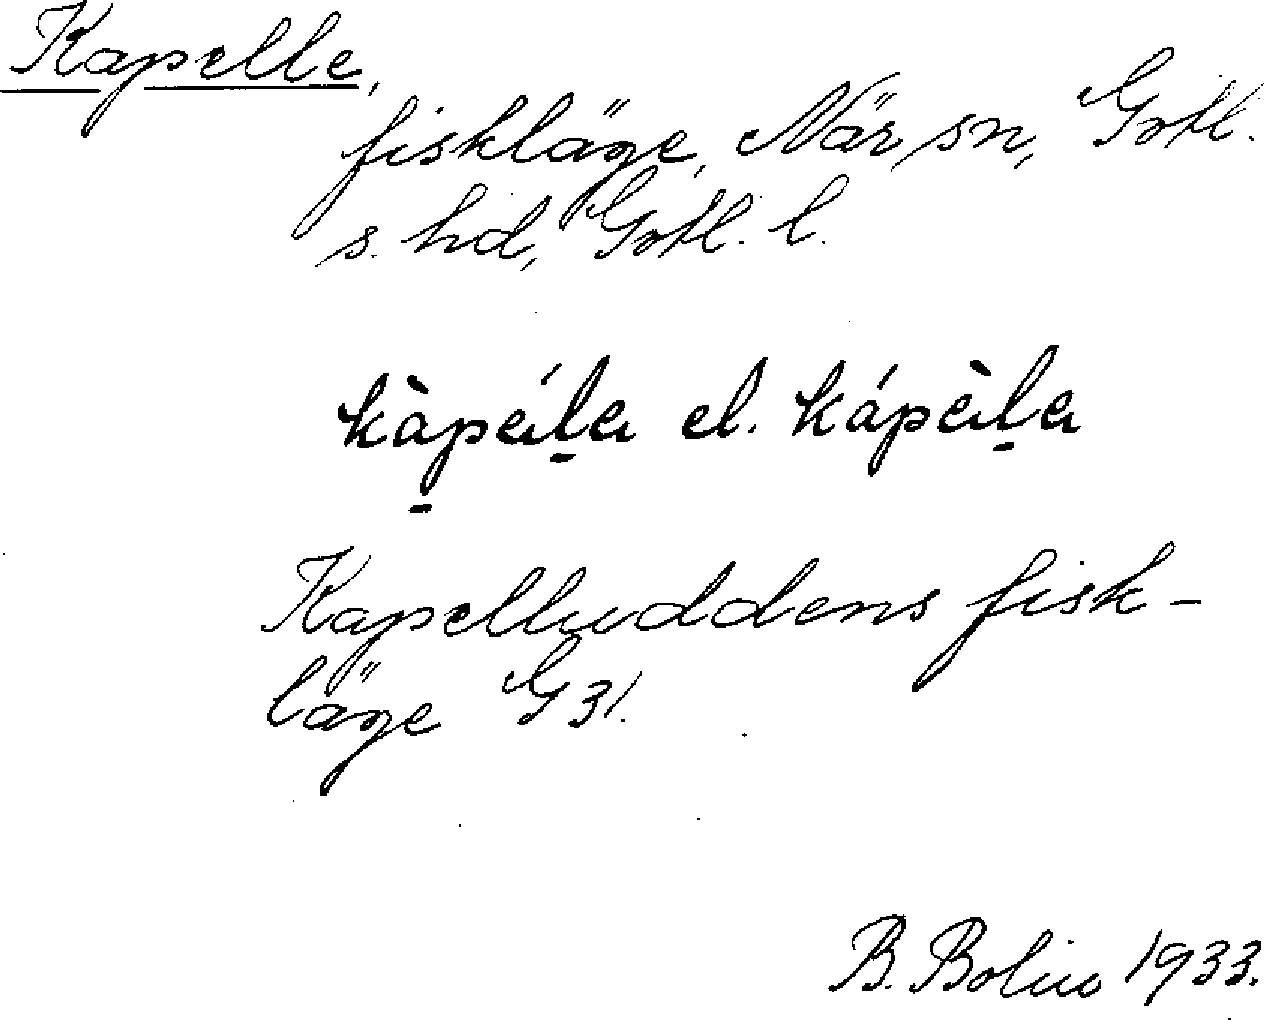 Kapelle,
fiskläge, När sn, Gotl.
s. hd, Gotl. l.
kàpáịḷa el. kápàịḷa
Kapelluddens fisk-
läge G 31.
B. Bolin 1933.